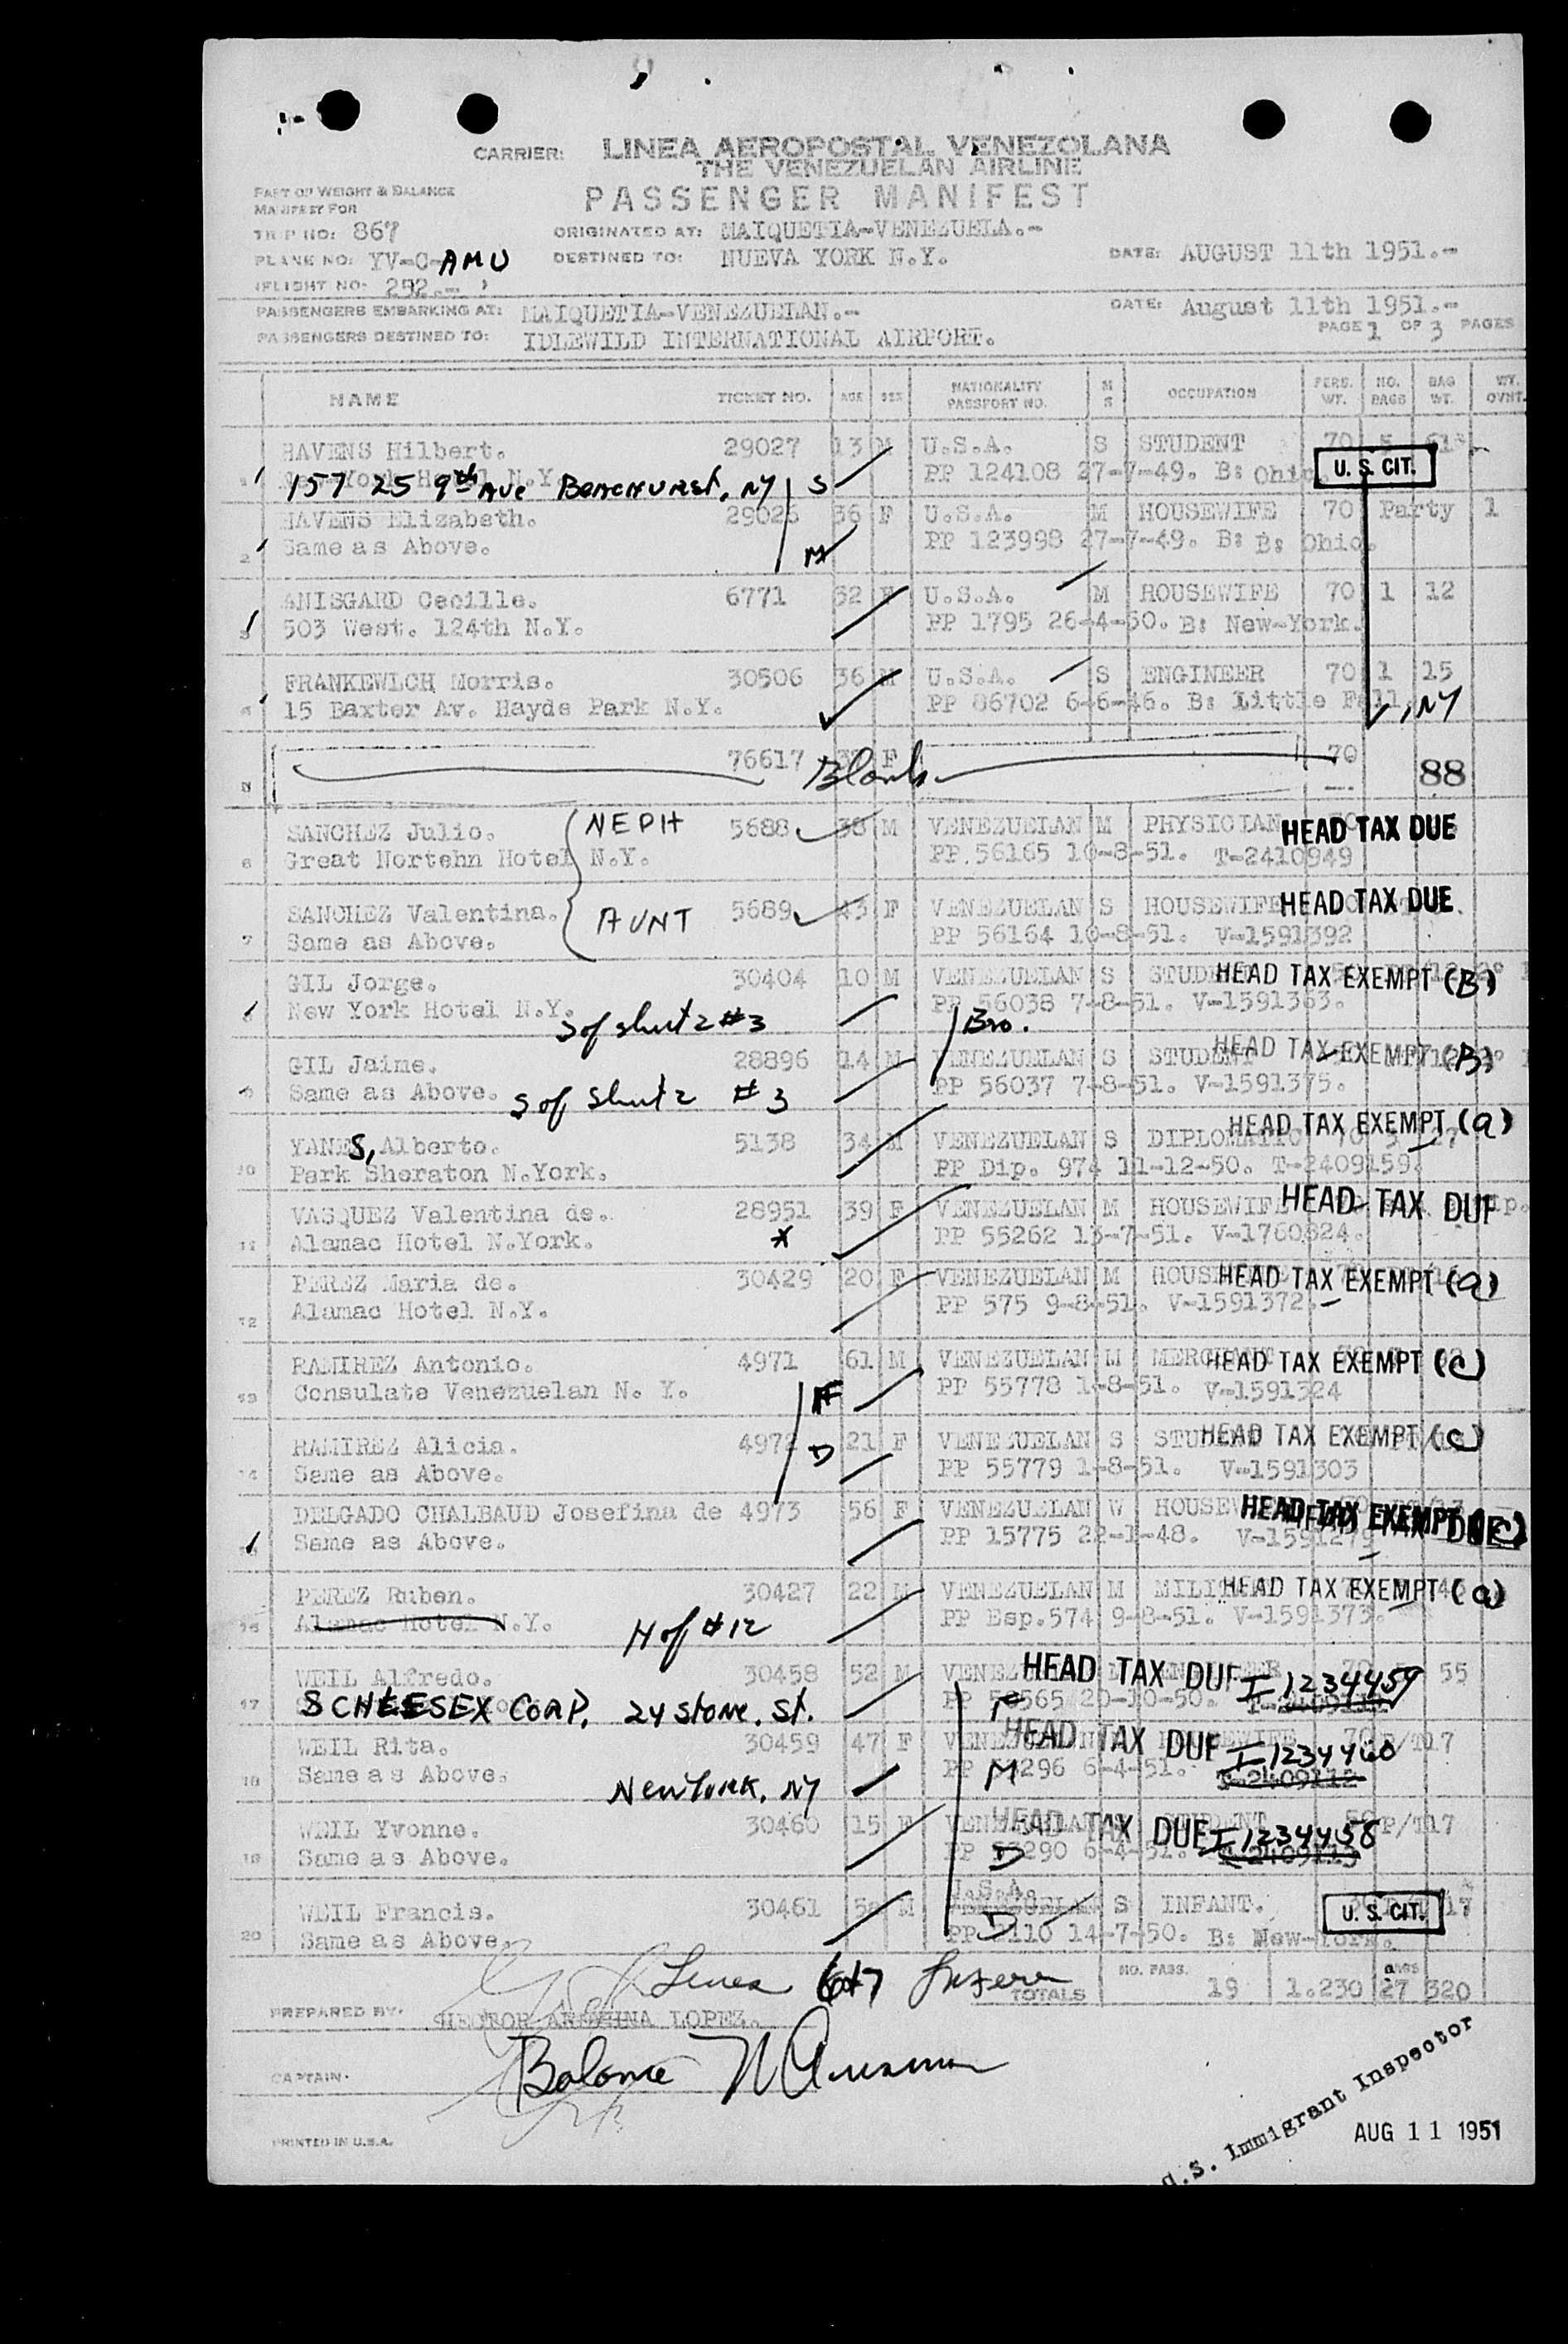 CARRIER: LINEA AEROPOSTAL VENEZOLANA
THE VENEZUELAN AIRLINE
PART OF WEIGHT & BALANCE
MANIFEST FOR
PASSENGER MANIFEST
TRIP NO: 867 ORIGINATED AT: MAIQUETIA-VENEZUELA.-
PLANE NO: YV-C-AMU DESTINED TO: NUEVA YORK N.Y. DATE: AUGUST 11th 1951.-
FLIGHT NO: 292.-
PASSENGERS EMBARKING AT: MAIQUETIA-VENEZUELAN.- DATE: August 11th 1951.-
PASSENGERS DESTINED TO: IDLEWILD INTERNATIONAL AIRPORT. PAGE 1 OF 3 PAGES
NAME TICKET NO. AGE SEX NATIONALITY PASSPORT NO. M S OCCUPATION PERS. WT. NO. BAGS BAG WT. WT. OVHT.
1 HAVENS Hilbert. 29027 13 M U.S.A. S STUDENT 70 5 61
157 25 9th Ave Beachhurst, NY S PP 124108 27-7-49. B: Ohio U. S. CIT.
HAVENS Elizabeth. 29026 36 F U.S.A. M HOUSEWIFE 70 Party 1
2 Same as Above. M PP 123998 27-7-49. B: B: Ohio.
ANISGARD Cecille. 6771 32 F U.S.A. M HOUSEWIFE 70 1 12
3 503 West. 124th N.Y. PP 1795 26-4-50. B: New-York.
FRANKEWLCH Morris. 30506 36 M U.S.A. S ENGINEER 70 1 15
4 15 Baxter Av. Hayde Park N.Y. PP 86702 6-6-46. B: Little Fall, NY
76617 F 70
Blank 88
SANCHEZ Julio. NEPH 5688 38 M VENEZUELAN M PHYSICIAN HEAD TAX DUE
6 Great Nortehn Hotel N.Y. PP. 56165 10-8-51. T-2410949
SANCHEZ Valentina. AUNT 5689 43 F VENEZUELAN S HOUSEWIFE HEAD TAX DUE
7 Same as Above. PP 56164 10-8-51. V-1591392
GIL Jorge. 30404 10 M VENEZUELAN S STUDENT HEAD TAX EXEMPT (B)
New York Hotel N.Y. PP 56038 7-8-51. V-1591363.
S of sheet 2 #3 Bro.
GIL Jaime. 28896 14 M VENEZUELAN S STUDENT HEAD TAX EXEMPT (B)
Same as Above. PP 56037 7-8-51. V-1591375.
S of sheet 2 #3
YANES, Alberto. 5138 34 M VENEZUELAN S DIPLOMATIC HEAD TAX EXEMPT (a)
10 Park Sheraton N.York. PP Dip. 974 11-12-50. T-2409159.
VASQUEZ Valentina de. 28951 39 F VENEZUELAN M HOUSEWIFE HEAD TAX DUE
11 Alamac Hotel N.York. PP 55262 13-7-51. V-1760824.
PEREZ Maria de. 30429 20 F VENEZUELAN M HEAD TAX EXEMPT (a)
12 Alamac Hotel N.Y. PP 575 9-8-51. V-1591372.-
RAMIREZ Antonio. 4971 61 M VENEZUELAN M MERCHANT HEAD TAX EXEMPT (c)
13 Consulate Venezuelan N. Y. F PP 55778 1-8-51. V-1591324
RAMIREZ Alicia. 4972 D 21 F VENEZUELAN S STUDENT HEAD TAX EXEMPT (c)
14 Same as Above. PP 55779 1-8-51. V-1591303
DELGADO CHALBAUD Josefina de 4973 56 F VENEZUELAN W HEAD TAX EXEMPT (c)
Same as Above. PP 15775 22-1-48. V-1591279
PEREZ Ruben. 30427 22 M VENEZUELAN M HEAD TAX EXEMPT (a)
16 Alamac Hotel N.Y. PP Esp.574 9-8-51. V-1591373.
H of #12
WEIL Alfredo. 30458 52 M HEAD TAX DUE I-1234459 55
17 SCHLESEX CORP. 24 Stone. St. F 20-10-50.
WEIL Rita. 30459 47 F HEAD TAX DUE I-1234460 P/T17
18 Same as Above. New York, NY M 6-4-51. T-2409112
WEIL Yvonne. 30460 15 F STUDENT HEAD TAX DUE I-1234458 P/T17
19 Same as Above. D 6-4-51. T-2409113
U.S.A.
WEIL Francis. 30461 M VENEZUELAN S INFANT. U. S. CIT. 17
20 Same as Above. D 14-7-50. B: New-York.
Lines 6+7 NO. PASS. BAGS
TOTALS 19 1.230 27 320
PREPARED BY: HECTOR LOPEZ.
Balance
CAPTAIN:
U.S. Immigrant Inspector
PRINTED IN U.S.A. AUG 11 1951